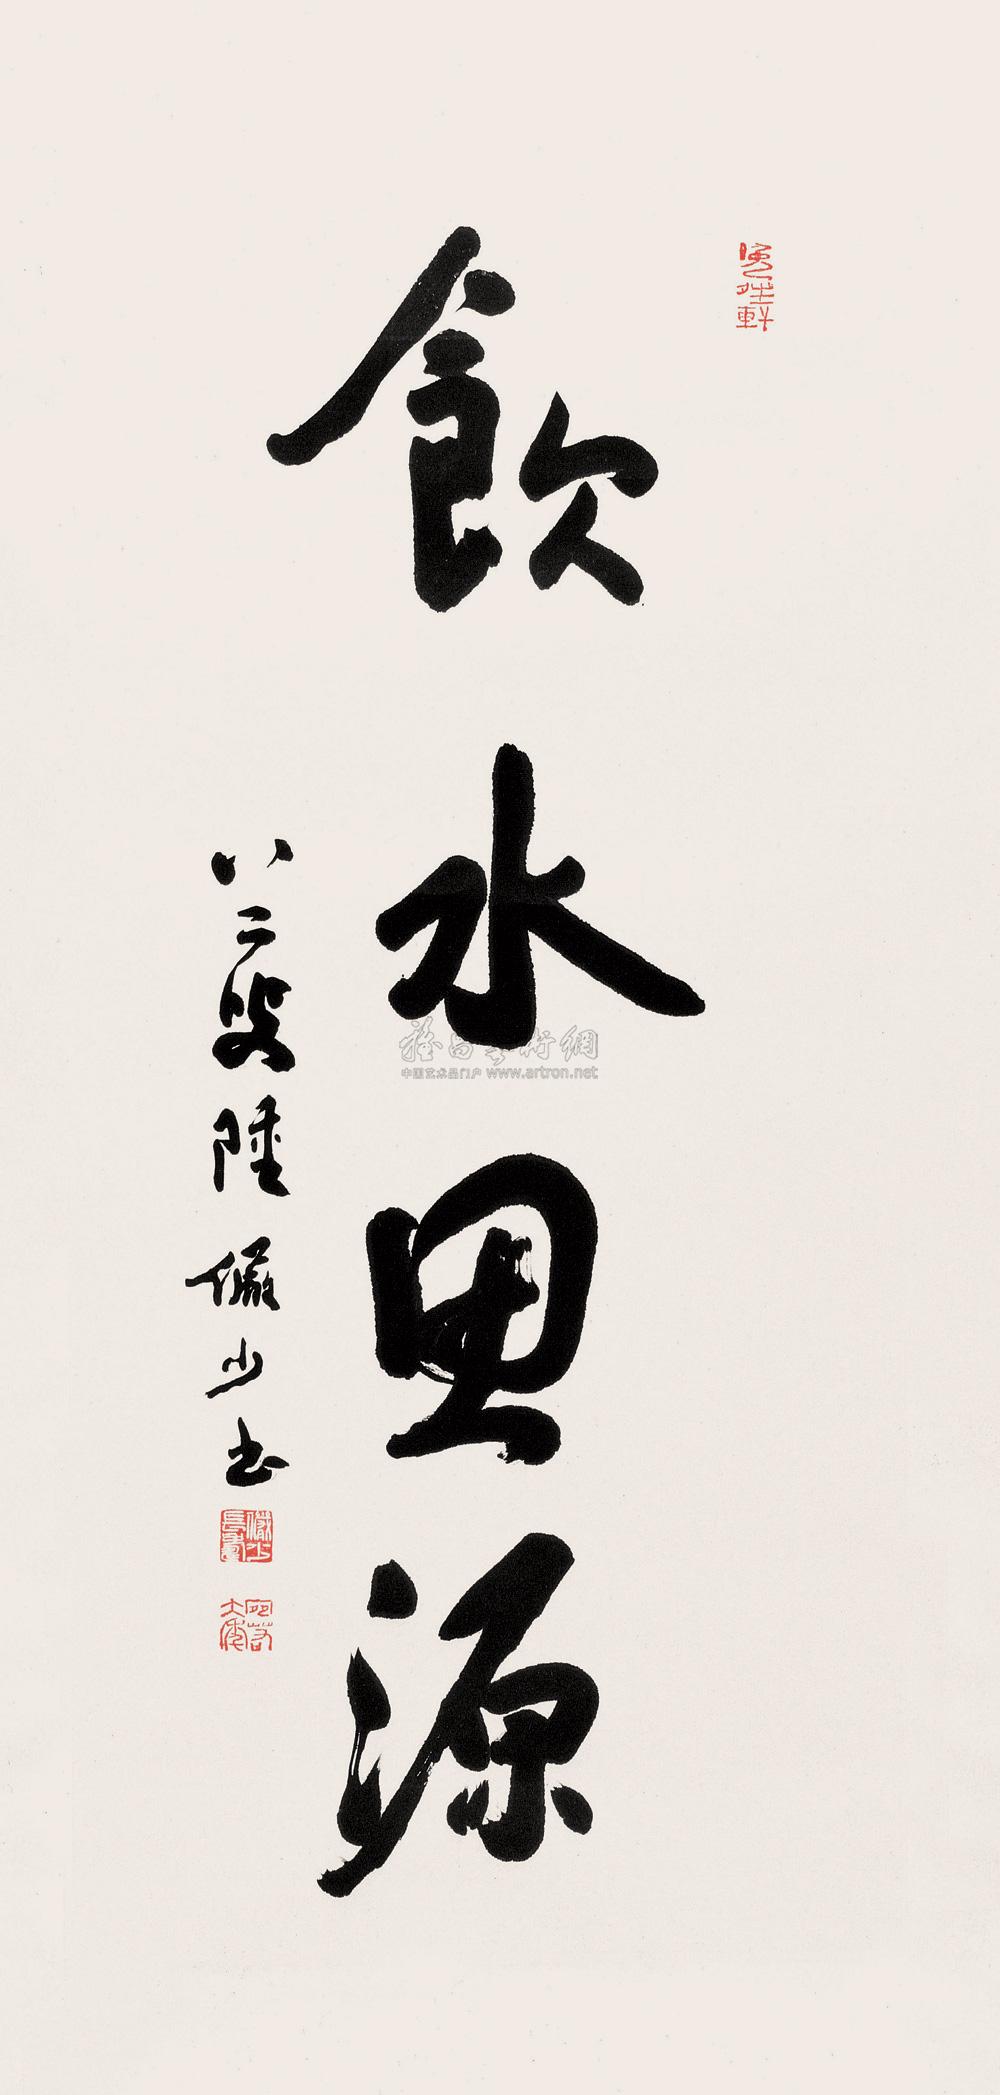 飲水思源
八二叟陸儼少書
雅昌艺術網
中国艺术品门户 www.artron.net